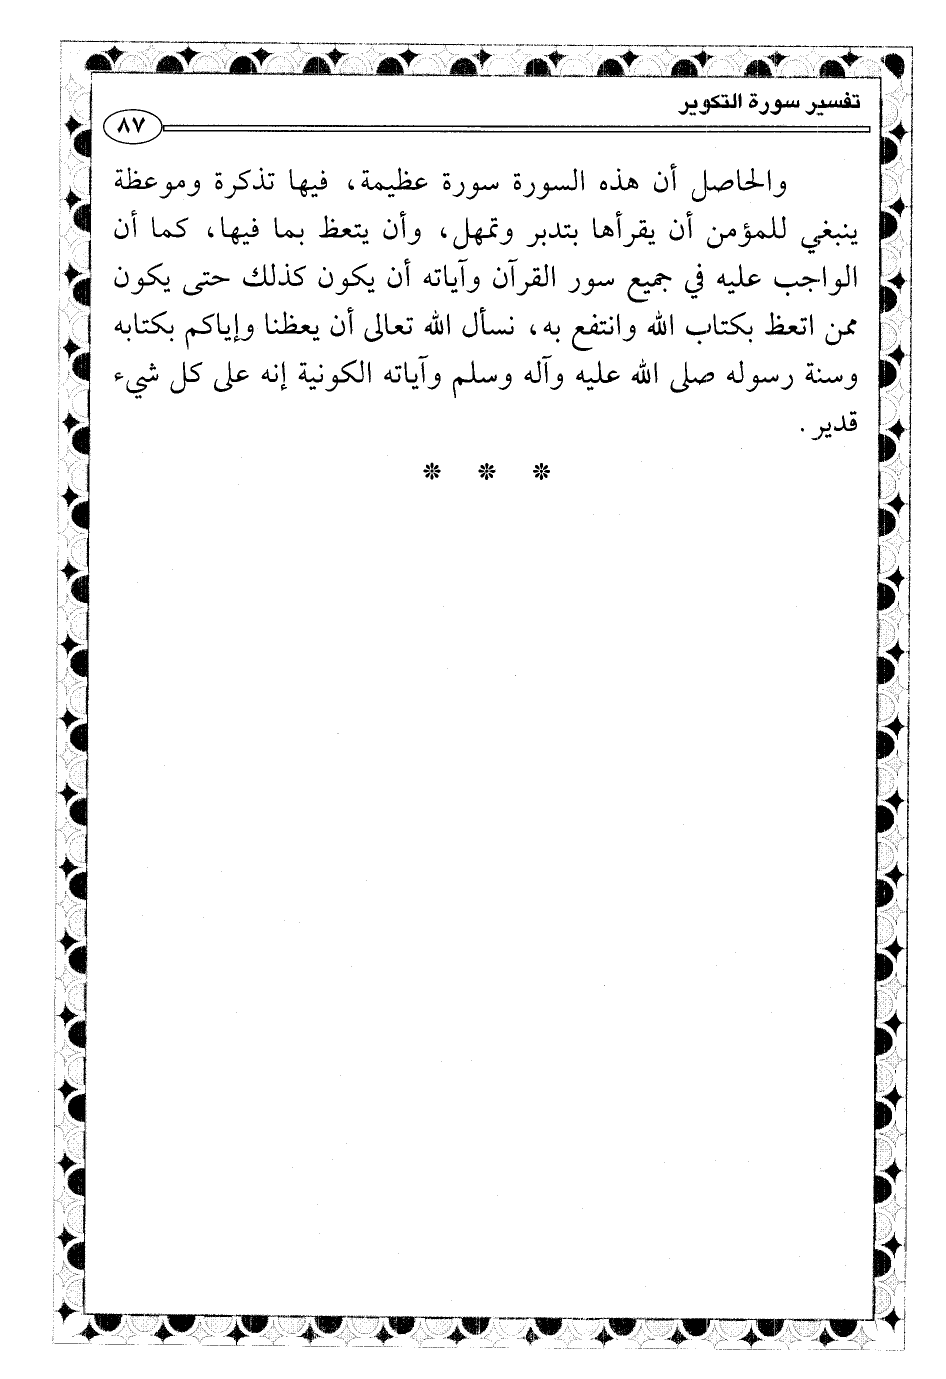 تفسير سورة التكوير
٨٧
والحاصل أن هذه السورة سورة عظيمة، فيها تذكرة وموعظة
ينبغي للمؤمن أن يقرأها بتدبر وتمهل، وأن يتعظ بما فيها، كما أن
الواجب عليه في جميع سور القرآن وآياته أن يكون كذلك حتى يكون
ممن اتعظ بكتاب الله وانتفع به، نسأل الله تعالى أن يعظنا وإياكم بكتابه
وسنة رسوله صلى الله عليه وآله وسلم وآياته الكونية إنه على كل شيء
قدير .
* * *